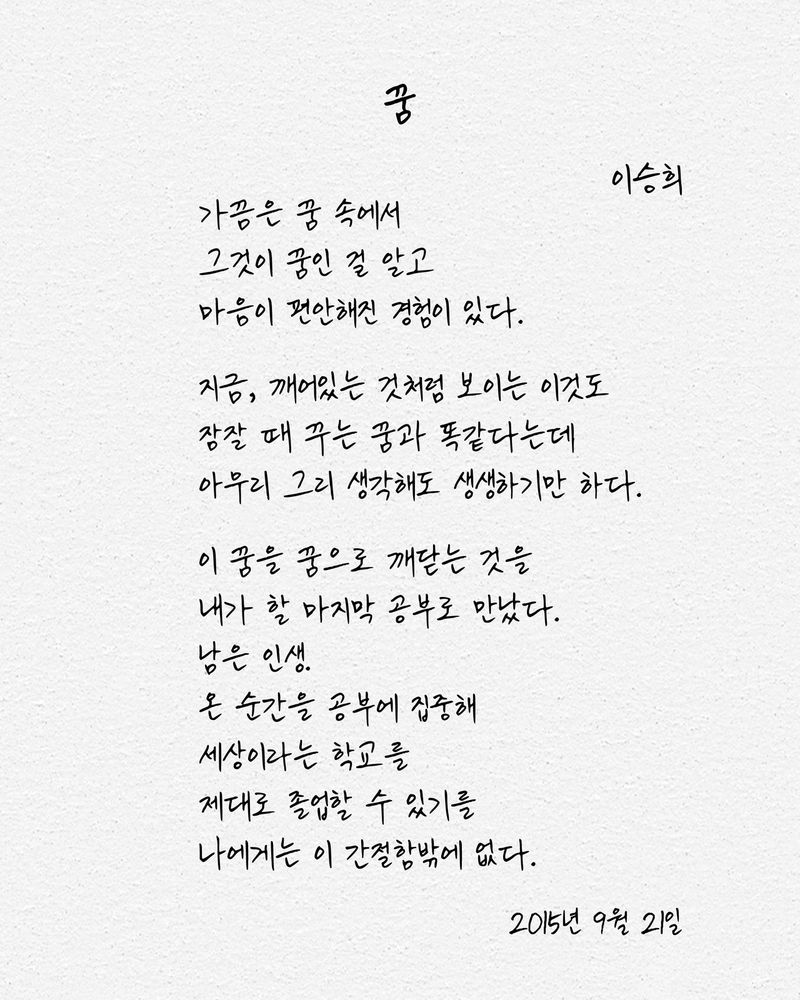 꿈
이승희
가끔은 꿈 속에서
그것이 꿈인 걸 알고
마음이 편안해진 경험이 있다.
지금, 깨어있는 것처럼 보이는 이것도
잠잘 때 꾸는 꿈과 똑같다는데
아무리 그리 생각해도 생생하기만 하다.
이 꿈을 꿈으로 깨닫는 것을
내가 할 마지막 공부로 만났다.
남은 인생.
온 순간을 공부에 집중해
세상이라는 학교를
제대로 졸업할 수 있기를
나에게는 이 간절함밖에 없다.
2015년 9월 21일